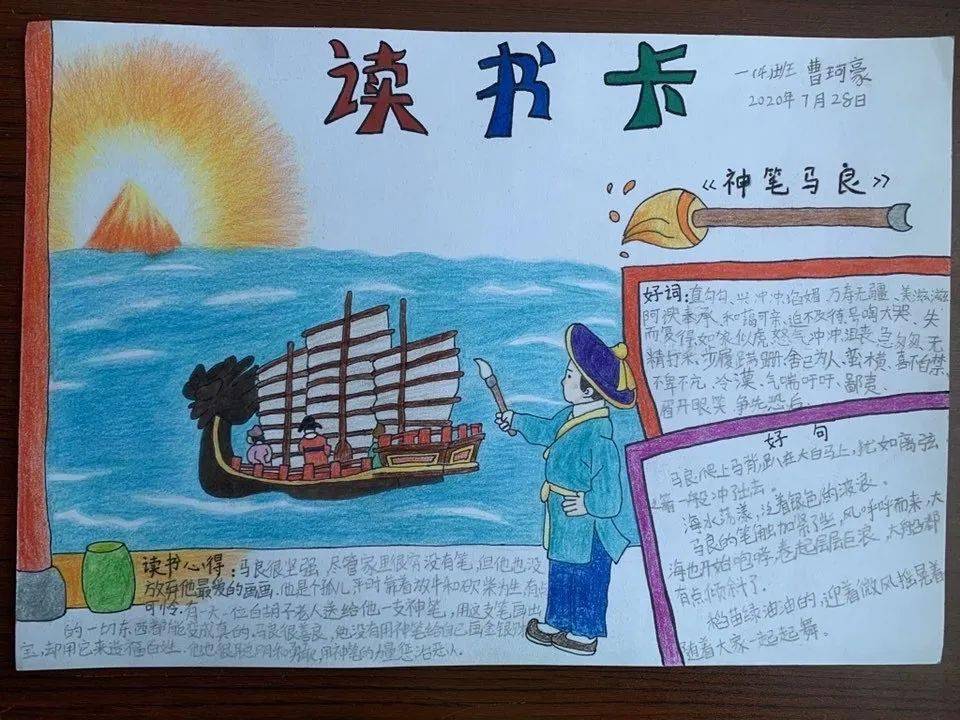 读书卡
一(4)班 曹珂豪
2020年7月28日
《神笔马良》
好词:直勾勾、兴冲冲、谄媚、万寿无疆、美滋滋
阿谀奉承、和蔼可亲、迫不及待、号啕大哭、失
而复得、如狼似虎、怒气冲冲、沮丧、急匆匆、无
精打采、步履蹒跚、舍己为人、蛮横、喜不自禁、
不卑不亢、冷漠、气喘吁吁、鄙夷、
眉开眼笑、争先恐后。
好句
马良爬上马背,趴在大白马上,犹如离弦
之箭一般冲出去。
海水荡漾,泛着银色的波浪。
马良的笔触加紧了些,风呼呼而来,大
海也开始咆哮,卷起层层巨浪,大船都
有点倾斜了。
稻苗绿油油的,迎着微风摇晃着
随着大家一起起舞。
读书心得:马良很坚强,尽管家里很穷没有笔,但他也没
放弃他最爱的画画,他是个孤儿平时靠着放牛和砍柴为生,有点
可怜。有一天一位白胡子老人送给他一支神笔,用这支笔画出
的一切东西都能变成真的,马良很善良,他没有用神笔给自己画金银财
宝,却用它来造福百姓。他也很聪明和勇敢,用神笔的力量惩治恶人。